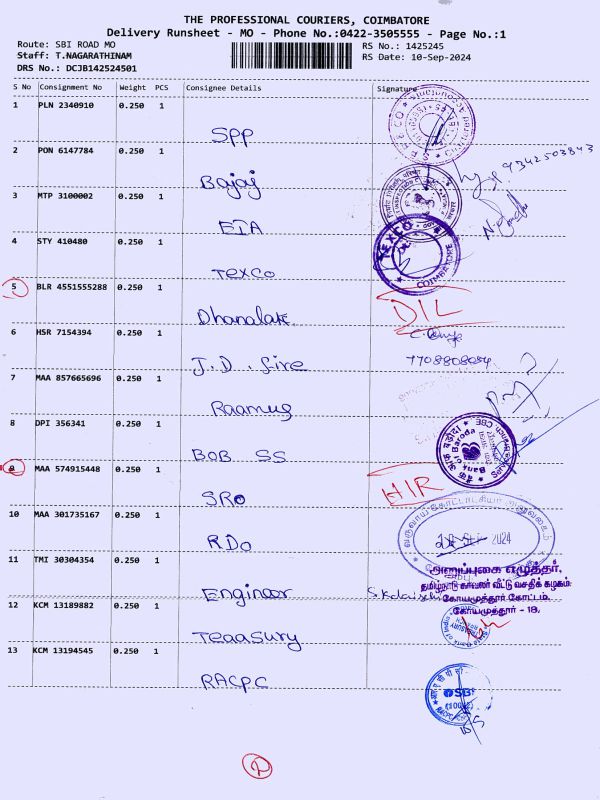 THE PROFESSIONAL COURIERS, COIMBATORE
Delivery Runsheet - MO - Phone No.:0422-3505555 - Page No.:1
Route: SBI ROAD MO
RS No.: 1425245
Staff: T.NAGARATHINAM
RS Date: 10-Sep-2024
DRS No.: DCJB142524501
S No Consignment No Weight PCS Consignee Details Signature
1 PLN 2340910 0.250 1
SPP
2 PON 6147784 0.250 1
9342503843
Bajaj
3 MTP 3100002 0.250 1
EIA
4 STY 410480 0.250 1
TEXCO
COIMBATORE
Texco
5 BLR 4551555288 0.250 1
DIL
Dhanalak
6 HSR 7154394 0.250 1
7708808084
J.D. fire
7 MAA 857665696 0.250 1
Raamug
8 DPI 356341 0.250 1
Bank of Baroda
BOB SS
9 MAA 574915448 0.250 1
HIR
SRO
10 MAA 301735167 0.250 1
2024
RDO
11 TMI 30304354 0.250 1
அனுப்புகை எழுத்தர்,
தமிழ்நாடு காவலர் வீட்டு வசதிக் கழகம்
கோயமுத்தூர் கோட்டம்,
கோயமுத்தூர் - 18.
Engineer
12 KCM 13189882 0.250 1
Teaasury
13 KCM 13194545 0.250 1
SBI
RACPC
2